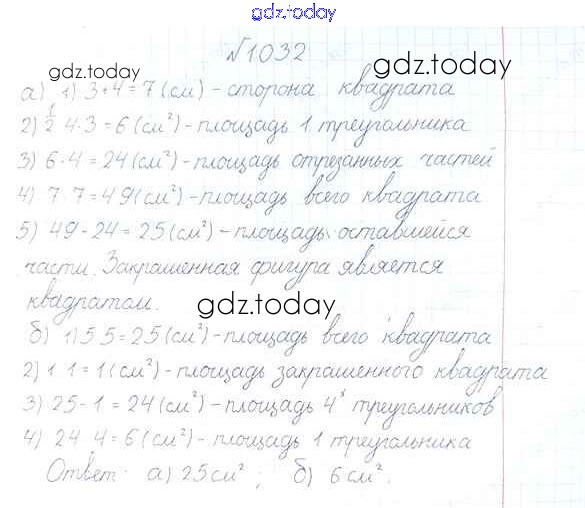 gdz.today
№1032
gdz.today gdz.today
а) 1) 3+4=7 (см) - сторона квадрата
2) 1/2 4·3=6 (см²) - площадь 1 треугольника
3) 6·4=24 (см²) - площадь отрезанных частей
4) 7·7=49 (см²) - площадь всего квадрата
5) 49-24=25 (см²) - площадь оставшейся
части. Закрашенная фигура является
квадратом.
gdz.today
б) 1) 5 5=25 (см²) - площадь всего квадрата
2) 1 1=1 (см²) - площадь закрашенного квадрата
3) 25-1=24 (см²) - площадь 4ˣ треугольников
4) 24 4=6 (см²) - площадь 1 треугольника
Ответ: а) 25 см²; б) 6 см².
gdz.today